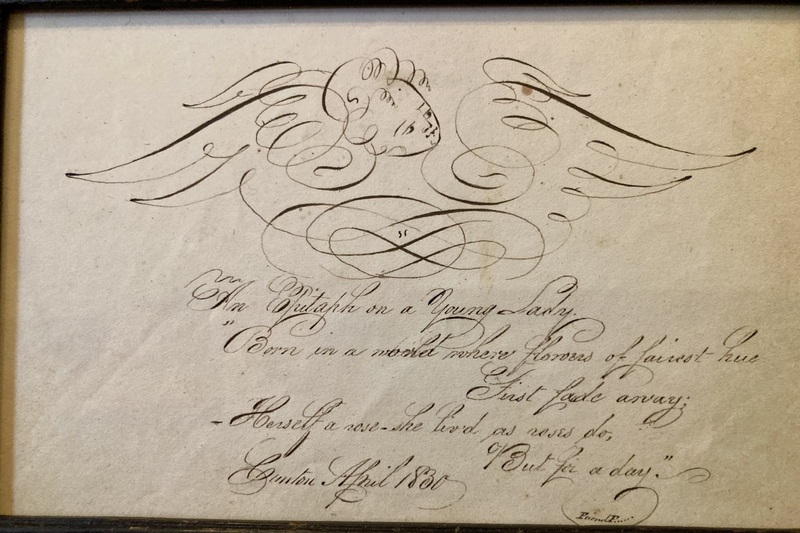 An Epitaph on a Young Lady.
"Born in a world where flowers of fairest hue
First fade away;
-Herself a rose-she liv'd as roses do,
But for a day."
Canton April 1830